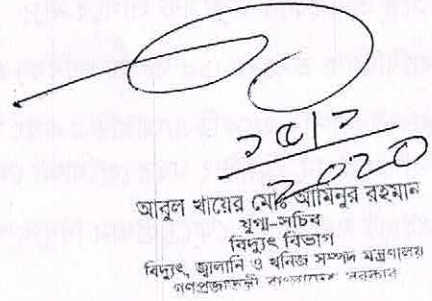 2020
আবুল খায়ের মোঃ আমিনুর রহমান
যুগ্ম-সচিব
বিদ্যুৎ বিভাগ
বিদ্যুৎ, জ্বালানি ও খনিজ সম্পদ মন্ত্রণালয়
গণপ্রজাতন্ত্রী বাংলাদেশ সরকার